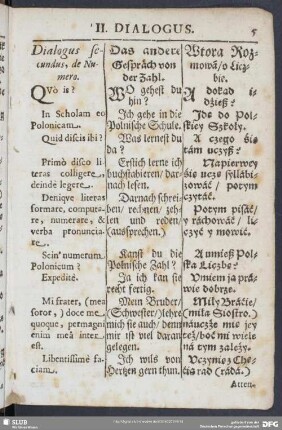 II. DIALOGUS. 5
Dialogus se-
cundus, de Nu-
mero.
QVò is?
In Scholam eo
Polonicam.
Quid discis ibi?
Primò disco li-
teras colligere,
deindè legere.
Deniqve literas
formare, computa-
re, numerare, &
verba pronuncia-
re.
Scin' numerum
Polonicum?
Expeditè.
Mi frater, (mea
soror,) doce me
quoque, permagni
enim meâ inter
est.
Libentissimè fa-
ciam.
Das andere
Gespräch von
der Zahl.
WO gehest du
hin?
Ich gehe in die
Polnische Schule.
Was lernest du
da?
Erstlich lerne ich
buchstabieren/ dar-
nach lesen.
Darnach schrei-
ben/ rechnen/ zeh-
len und reden/
(aussprechen.)
Kanst du die
Polnische Zahl?
Ja ich kan sie
recht fertig.
Mein Bruder/
(Schwester/) lehre
mich sie auch/ denn
mir ist viel daran
gelegen.
Ich wils von
Hertzen gern thun.
Wtora Roz-
mowá/ o Licz-
bie.
A dokąd i-
dziesz?
Idę do Pol-
skiey Szkoły.
A czego się
tám uczysz?
Napierwey
się uczę syllábi-
zowáć/ potym
czytáć.
Potym pisáć/
y ráchowáć/ li-
czyć y mowić.
A umiesz Pol-
ską Liczbę?
Umiem ją prá-
wie dobrze.
Miły Brácie/
(miła Siostro.)
náuczże mię jey
też/ boć mi wiele
ná tym zależy.
Uczynię z Chę-
cią rad (rádá.)
Atten-
SLUB
DFG